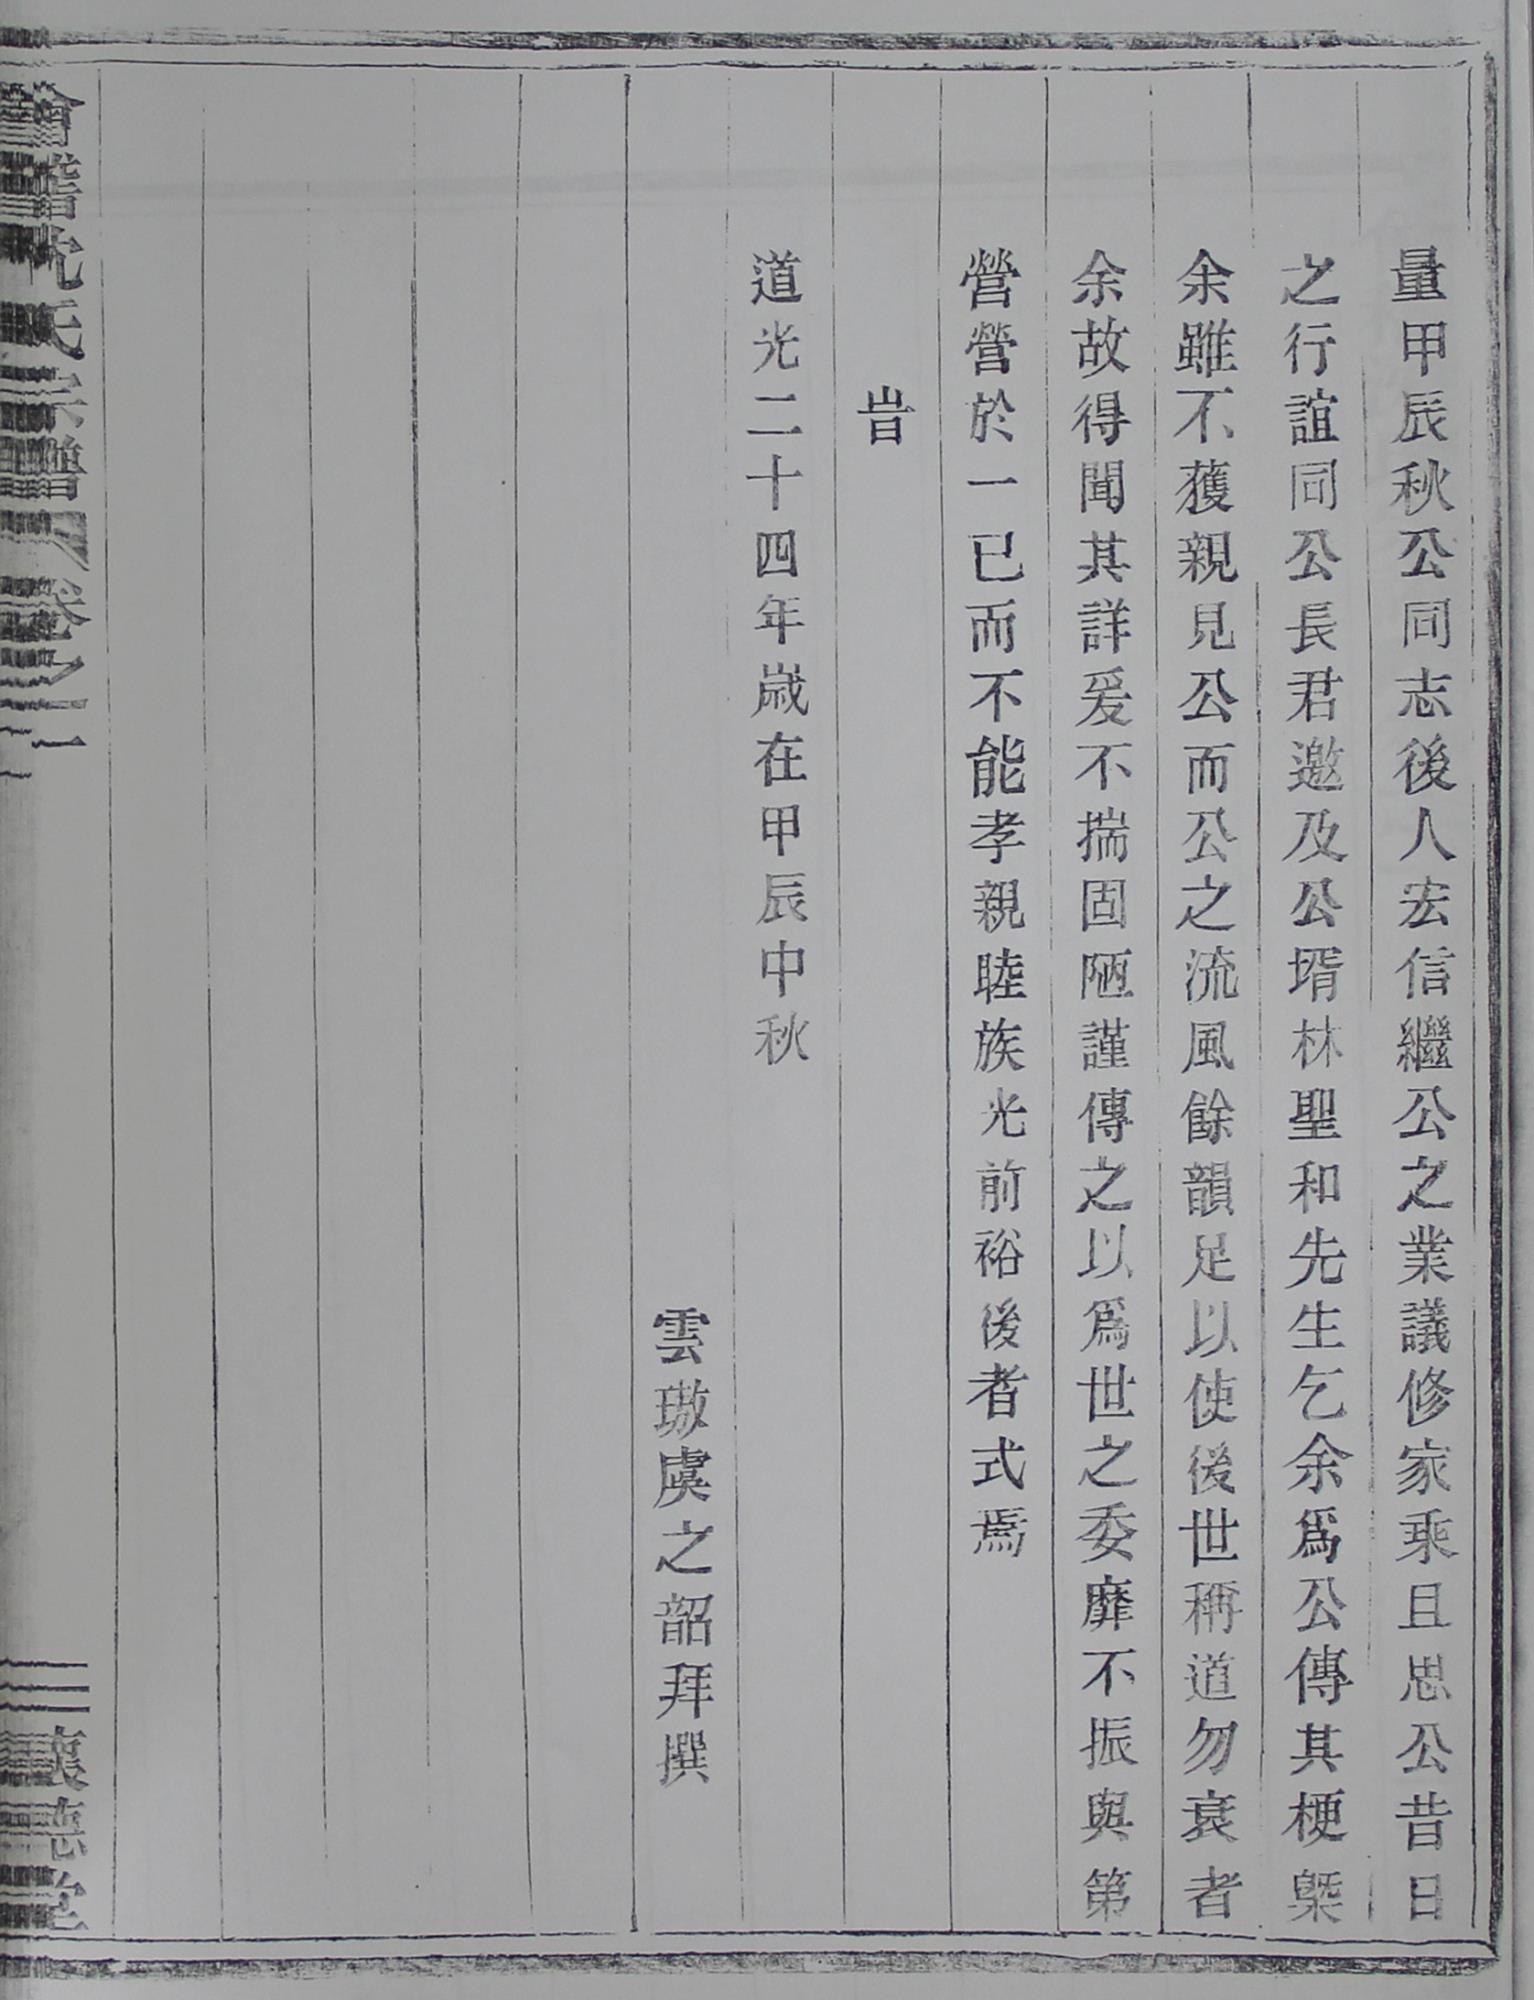 量甲辰秋公同志後人宏信繼公之業議修家乘且思公昔日
之行誼同公長君邀及公壻林聖和先生乞余爲公傳其梗槩
余雖不獲親見公而公之流風餘韻足以使後世稱道勿衰者
余故得聞其詳爰不揣固陋謹傳之以爲世之委靡不振與第
營營於一已而不能孝親睦族光前裕後者式焉
旹
道光二十四年歲在甲辰中秋
雲璈虞之韶拜撰
會稽沈氏宗譜 卷
三 懷德堂